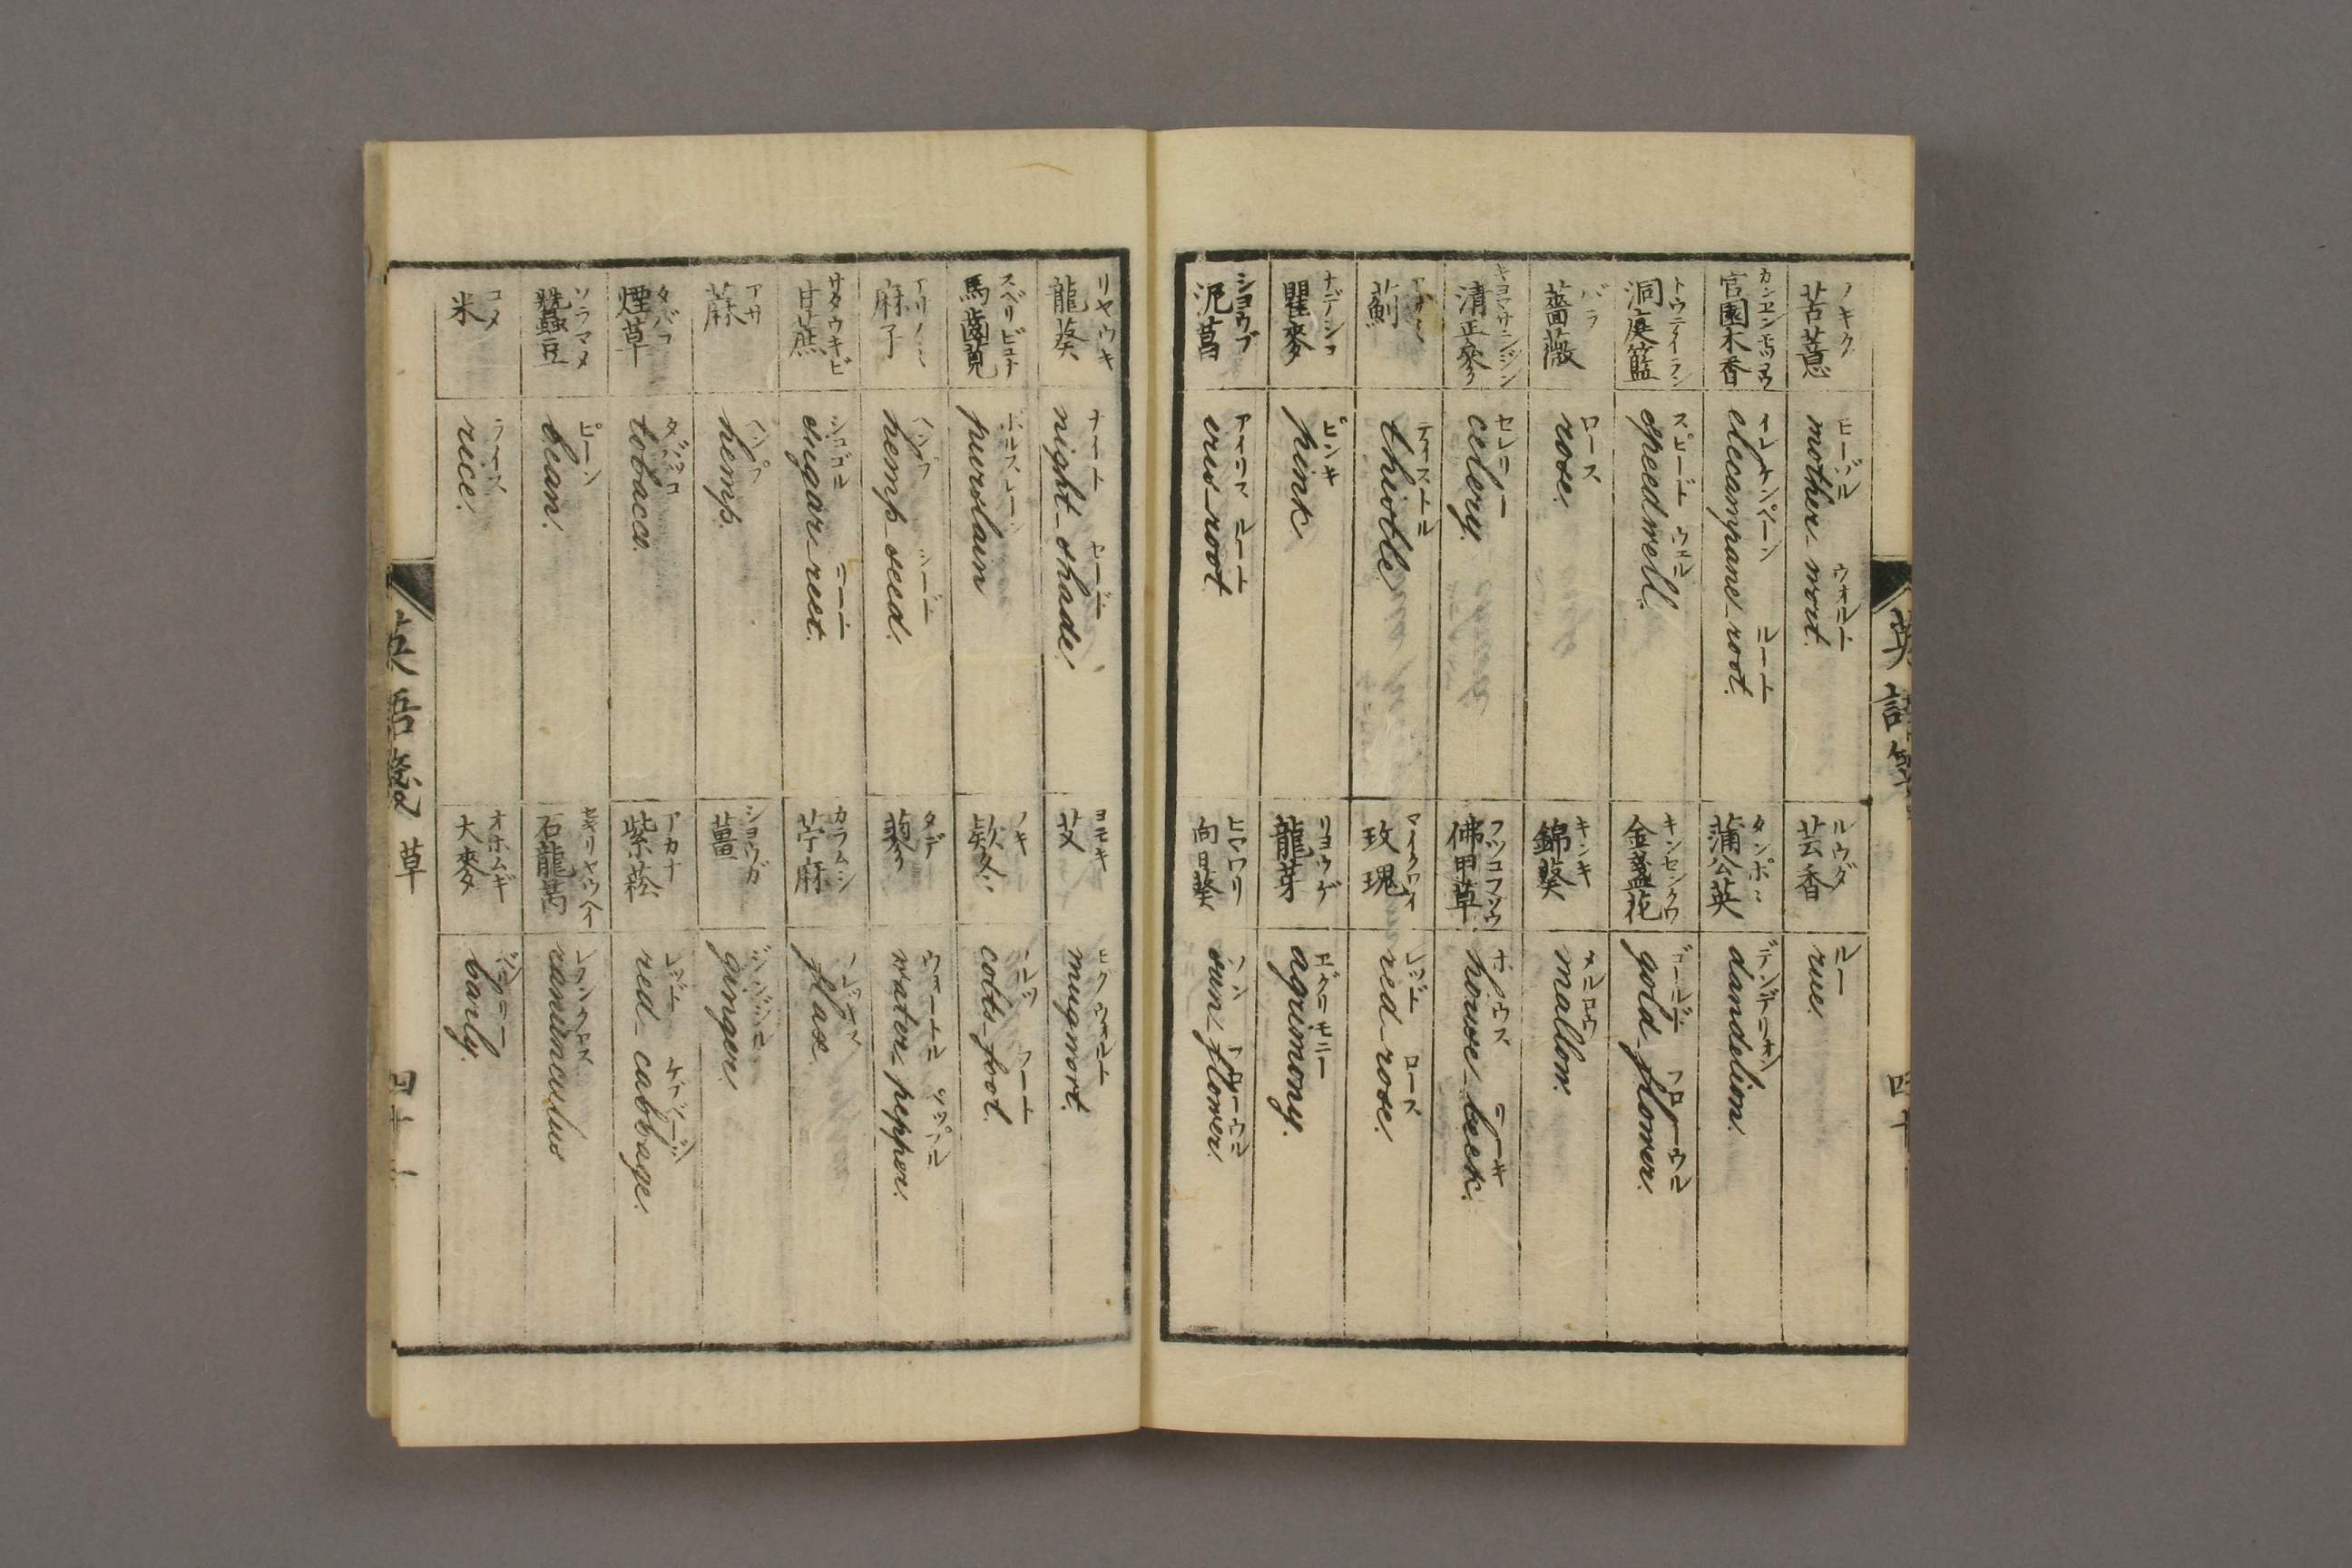 英語箋
苦薏 ノキク
mother-wort. モーゾル ウオルト
芸香 ルウダ
rue. ルー
官園木香 カンエンモツコウ
elecampane-root. イレケンペーン ルート
蒲公英 タンポヽ
dandelion. デンデリオン
洞庭籃 トウテイラン
speedwell. スピード ウエル
金盞花 キンセンクワ
gold-flower. ゴールド フローウル
薔薇 バラ
rose. ロース
錦葵 キンキ
mallow. マルロウ
清正參 キヨマサニンジン
celery. セレリー
佛甲草 フツコフソウ
house-leek. ホウス リーキ
薊 アザミ
thistle ティストル
玫瑰 マイクワイ
red-rose. レッド ロース
瞿麥 ナデシコ
pink ピンキ
龍芽 リヨウゲ
agrimony. エグリモニー
泥菖 シヨウブ
iris-root アイリス ルート
向日葵 ヒマワリ
sun-flower. ソン フローウル
龍葵 リヤウキ
night-shade. ナイト セーデ
艾 ヨモキ
mugwort. モクウオルト
馬齒莧 スベリビユナ
purslain ポルスレーン
欵冬 フキ
colts-foot. コルツ フート
麻子 アサノミ
hemp-seed. ヘンプ シード
蓼 タデ
water-pepper. ウォートル ペップル
甘蔗 サタウキビ
sugar-reet. シユゴル リート
苧麻 カラムシ
flax. フレッキス
蔴 アサ
hemp. ヘンプ
薑 シヨウガ
ginger. ジンジル
煙草 タバコ
tobacco. タバッコ
紫菘 アカナ
red-cabbage. レッド ケブベージ
蠶豆 ソラマメ
bean. ビーン
石龍芮 セキリヤウヘイ
ranunculus レノンクユス
米 コメ
rice. ライス
大麥 オホムギ
barly. バルリー
英語箋 草 四十一